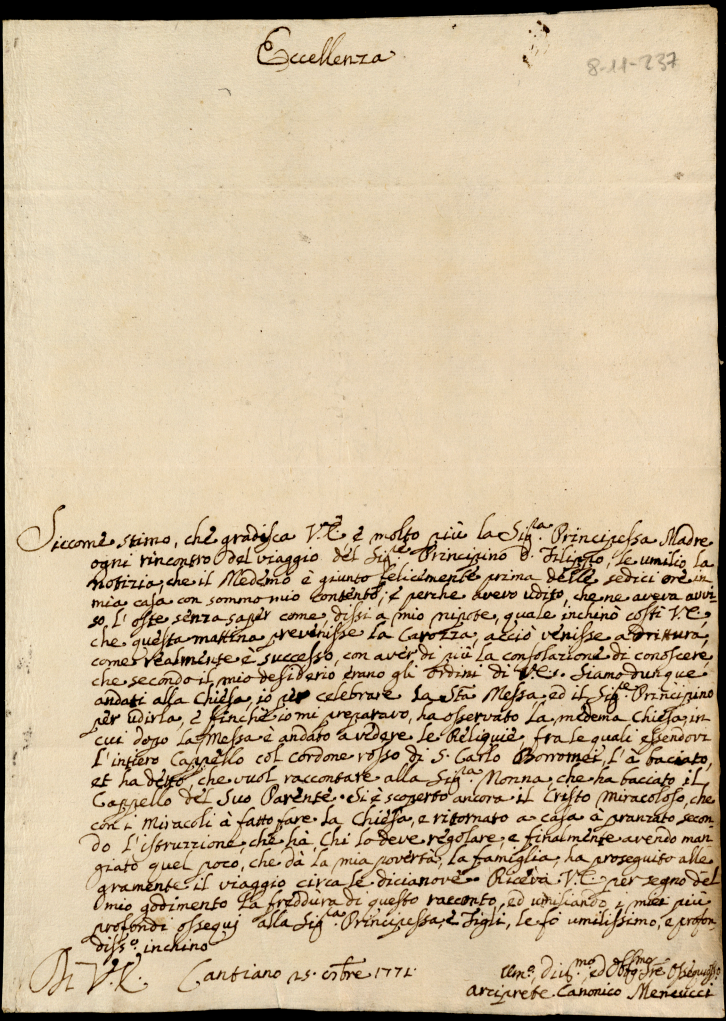 Eccellenza
8-11-237
Siccome stimo, che gradisca V.E. e molto più la Sig.ra Principessa Madre
ogni rincontro del viaggio del Sig.re Principino D. Filippo, le umilio la
notizia, che il Medemo è giunto felicemente prima delle sedici ore in
mia casa con sommo mio contento; e perche avevo udito, che ne aveva avvi-
so, l'oste senza saper come, dissi a mio nipote, quale inchinò costì V.E.,
che questa mattina prevenisse la Carozza, acciò venisse a drittura,
come realmente è successo, con aver di più la consolazione di conoscere,
che secondo il mio desiderio erano gli ordini di V.E. Siamo dunque
andati alla Chiesa, io per celebrare la S.ta Messa, ed il Sig.re Principino
per udirla, e finche io mi preparavo, ha osservato la medema Chiesa, in
cui dopo la Messa è andato a vedere le Reliquie, fra le quali essendovi
l'intiero Cappello col cordone rosso di S. Carlo Borromei, l'à baciato,
et ha detto, che vuol raccontare alla Sig.ra Nonna, che ha baciato il
Cappello del Suo Parente. Si è scoperto ancora il Cristo Miracoloso, che
con i Miracoli à fatto fare la Chiesa, e ritornato a casa à pranzato secon-
do l'istruzione, che hà Chi lo deve regolare, e finalmente avendo man-
giato quel poco, che dà la mia povertà, la famiglia ha proseguito alle-
gramente il viaggio circa le dicianove. Riceva V.E. per segno del
mio godimento la freddura di questo racconto, ed umiliando i miei più
profondi ossequj alla Sig.ra Principessa, e Figli, le fo umilissimo, e profon-
diss.o inchino
Di V.E. Cantiano 25. 1771.
Um.o ed Obbl.mo
Arciprete Canonico Meneucci